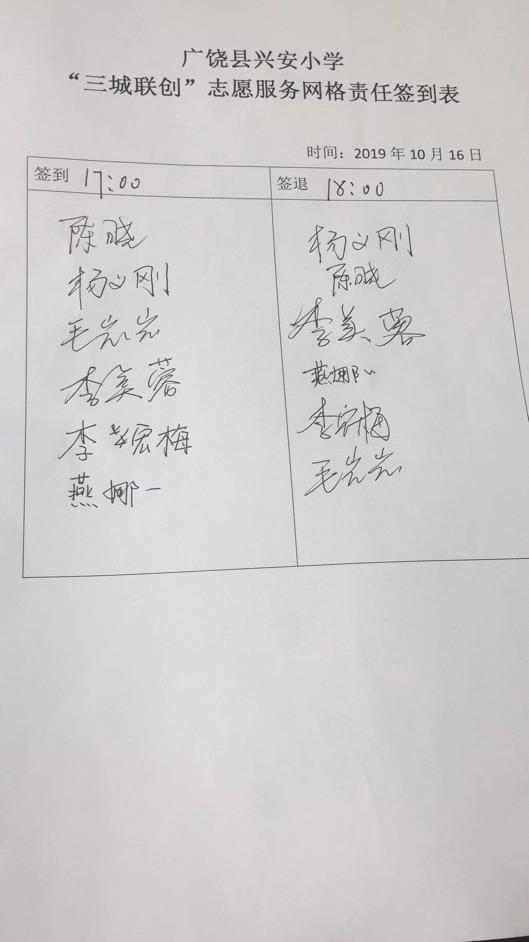 广饶县兴安小学
“三城联创”志愿服务网格责任签到表
时间：2019年10月16日
签到 17:00
签退 18:00
陈晓
杨义刚
毛岩岩
李美蓉
李梅
燕娜
杨义刚
陈晓
李美蓉
燕娜
李梅
毛岩岩